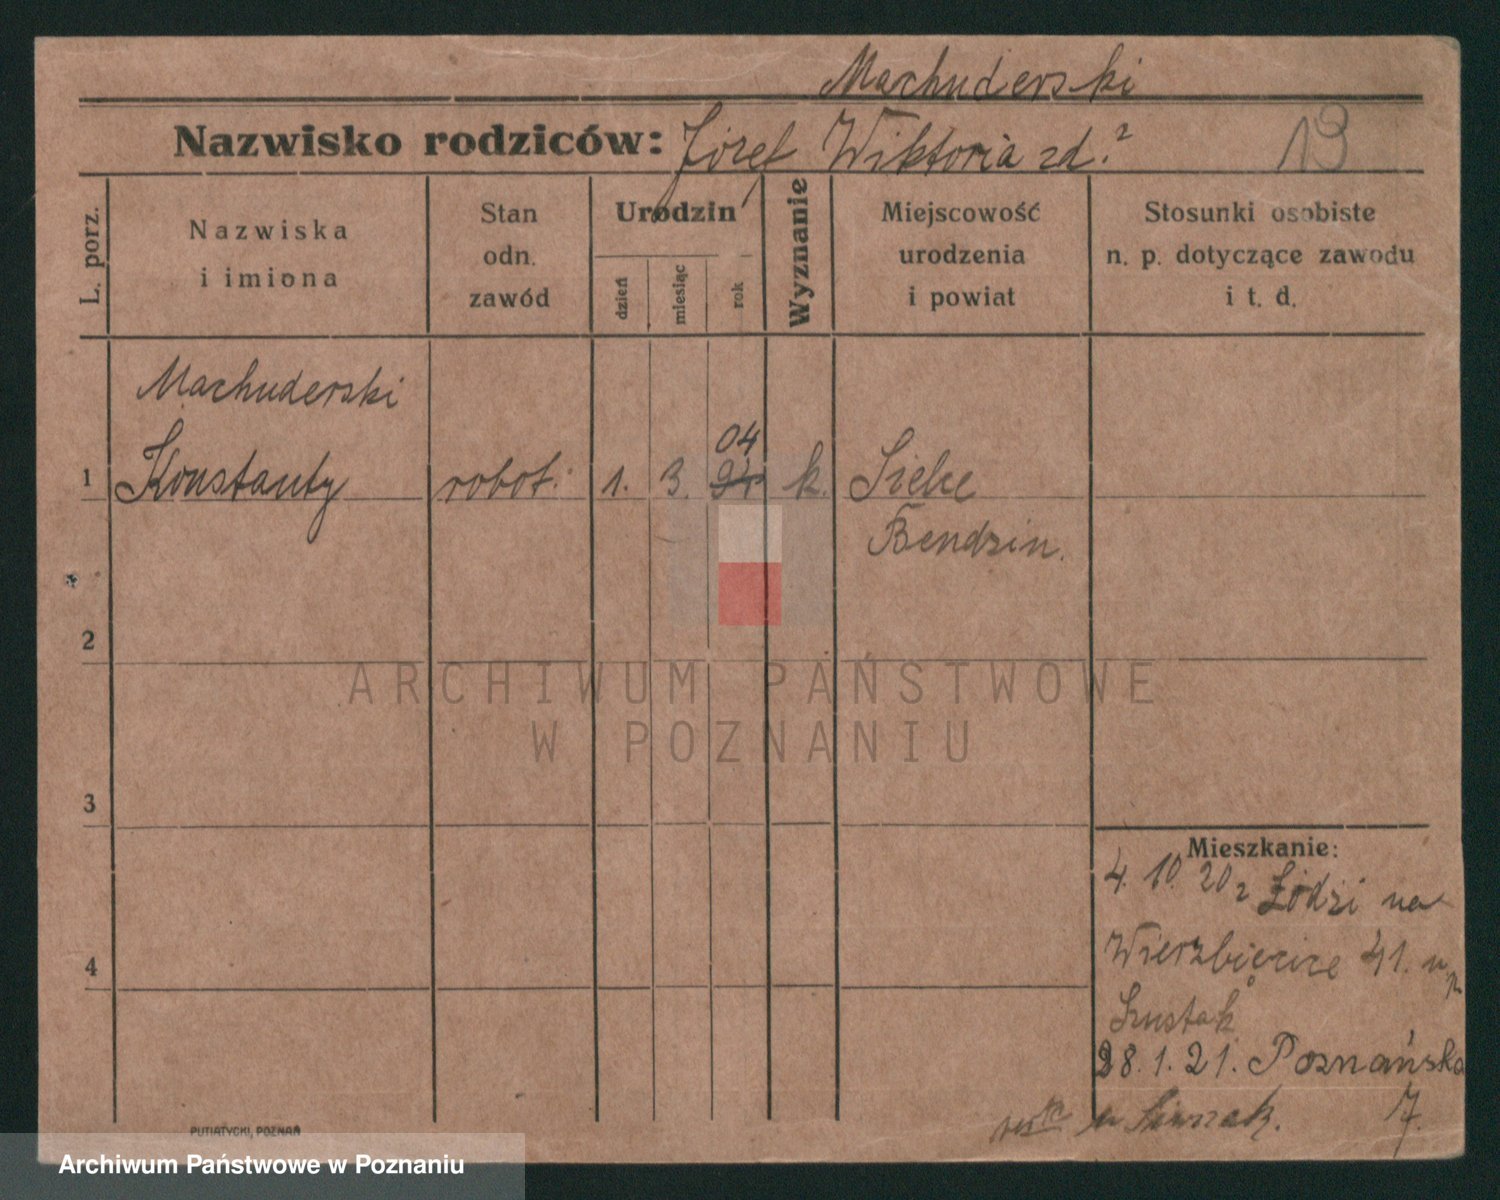 Machuderski
Nazwisko rodziców: Józef Wiktoria zd.?
19
L. porz.
Nazwiska
i imiona
Stan
odn.
zawód
Urodzin
dzień
miesiąc
rok
Wyznanie
Miejscowość
urodzenia
i powiat
Stosunki osobiste
n. p. dotyczące zawodu
i t. d.
Machuderski
04
1 Konstanty robot. 1. 3. k. Sielce
Bendzin.
2
3
4
Mieszkanie:
4. 10. 20 z Łodzi na
Wierzbięcice 41.
Szustak
28. 1. 21. Poznańska
7.
PUTIATYCKI, POZNAŃ
ARCHIWUM PAŃSTWOWE
W POZNANIU
Archiwum Państwowe w Poznaniu